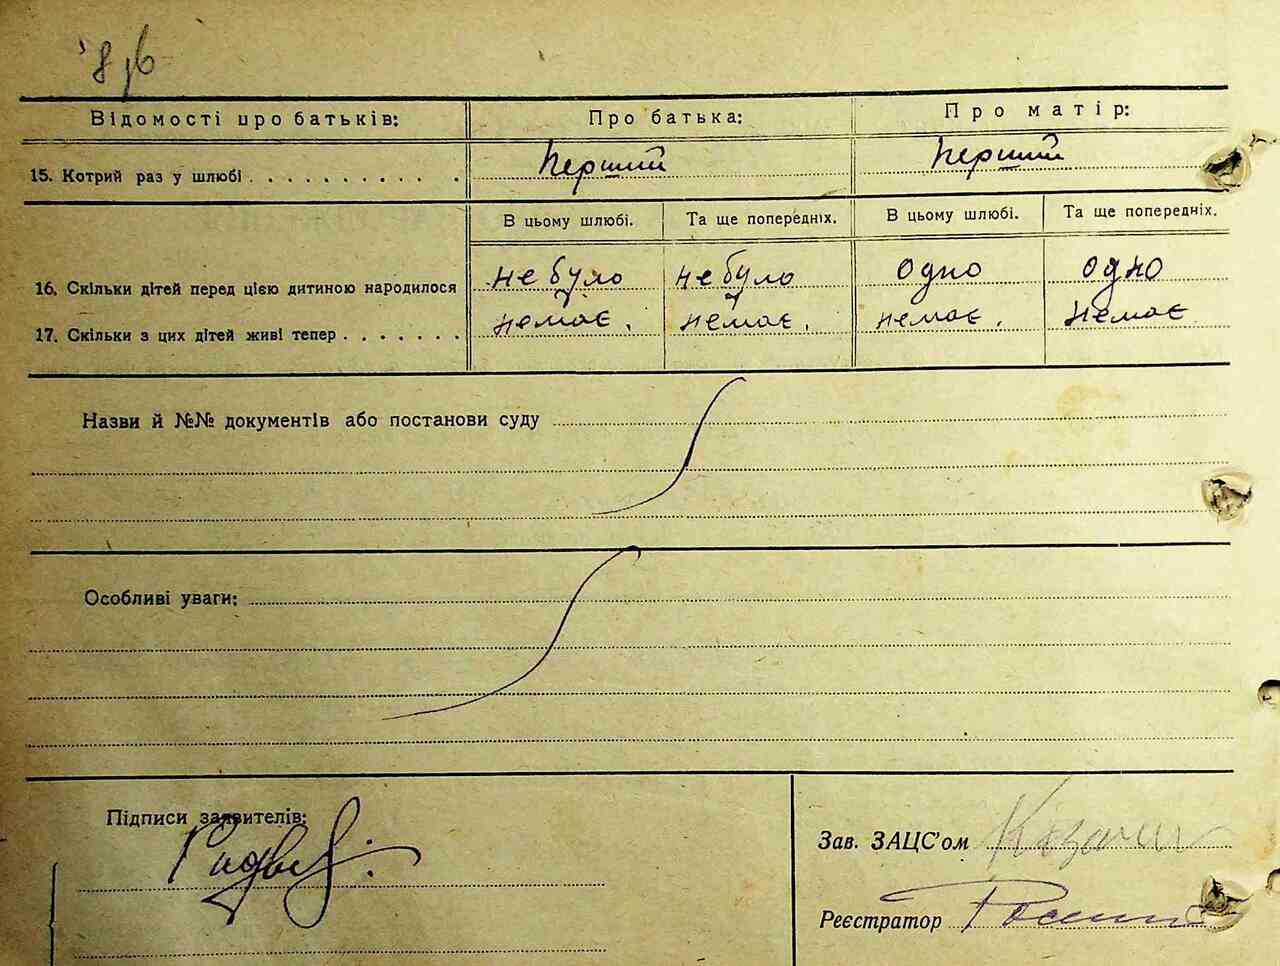 Відомості про батьків: Про батька: Про матір:
15. Котрий раз у шлюбі . . . . . . . . . . . Перший Перший
В цьому шлюбі. Та ще попередніх. В цьому шлюбі. Та ще попередніх.
16. Скільки дітей перед цією дитиною народилося не було не було одно одно
17. Скільки з цих дітей живі тепер . . . . . . . немає. немає. немає. немає
Назви й №№ документів або постанови суду
Особливі уваги:
Підписи заявителів:
Зав. ЗАЦС'ом
Реєстратор